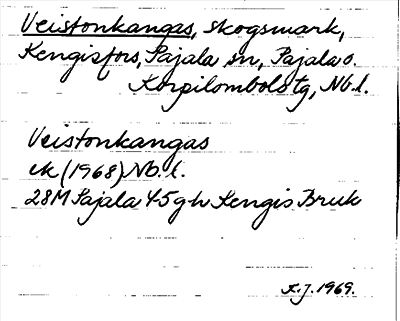 Veistonkangas, skogsmark,
Kengisfors, Pajala sn, Pajala o.
Korpilombolo tg, Nb.l.
Veistonkangas
ek (1968) Nb.l.
28M Pajala 4-5 g-h Kengis Bruk
E.J. 1969.